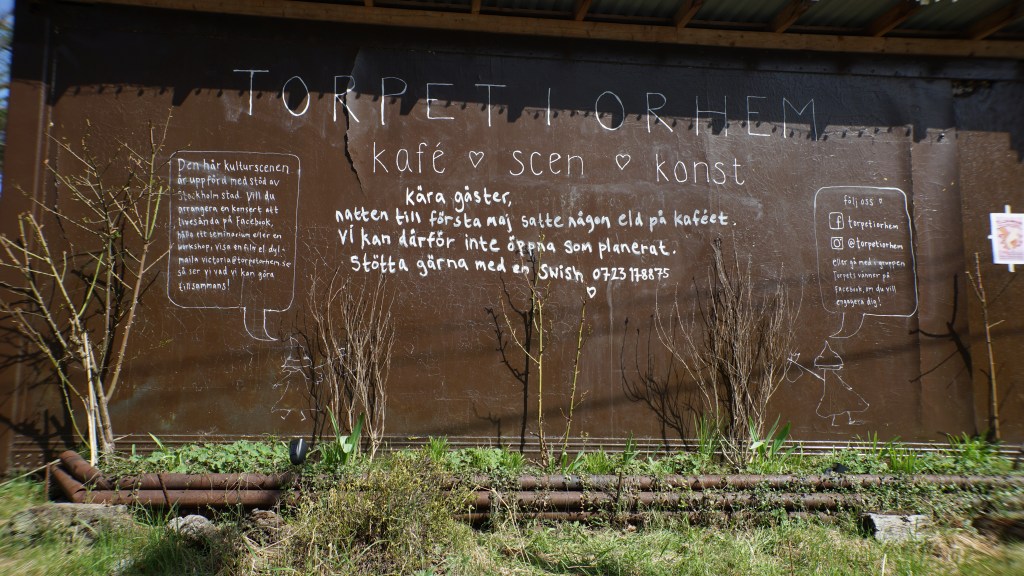 TORPET I ORHEM
kafé ♡ scen ♡ konst
kära gäster,
natten till första maj satte någon eld på kaféet.
Vi kan därför inte öppna som planerat.
Stötta gärna med en Swish 0723 178875
♡
Den här kulturscenen
är uppförd med stöd av
Stockholm stad. Vill du
arrangera en konsert att
livesända på Facebook,
hålla ett seminarium eller en
workshop, visa en film el. dyl -
maila victoria@torpetiorhem.se
så ser vi vad vi kan göra
tillsammans!
följ oss ♡
torpetiorhem
@torpetiorhem
eller gå med i gruppen
Torpets vänner på
Facebook, om du vill
engagera dig!